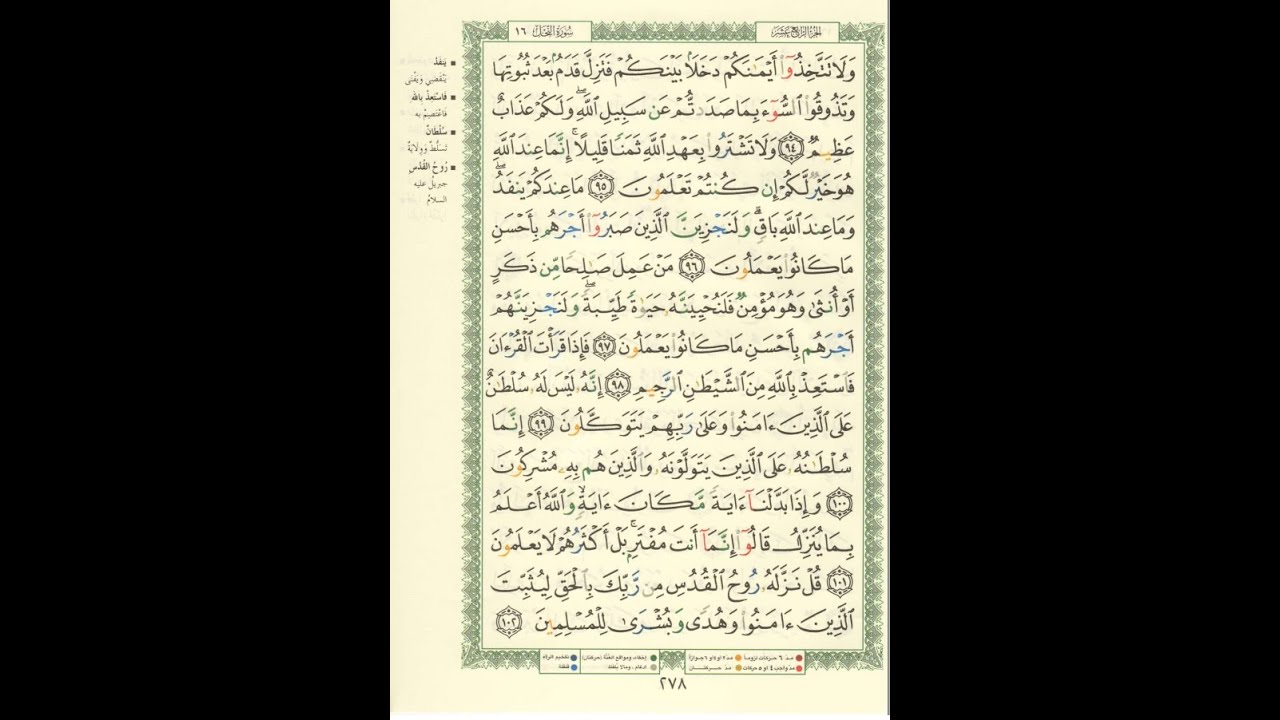 سُورَةُ النَّحْلِ ١٦
الجُزْءُ الرَّابِعَ عَشَرَ
وَلَا تَتَّخِذُوٓا۟ أَيْمَـٰنَكُمْ دَخَلًۢا بَيْنَكُمْ فَتَزِلَّ قَدَمٌۢ بَعْدَ ثُبُوتِهَا
وَتَذُوقُوا۟ ٱلسُّوٓءَ بِمَا صَدَدتُّمْ عَن سَبِيلِ ٱللَّهِ ۖ وَلَكُمْ عَذَابٌ
عَظِيمٌ ٩٤ وَلَا تَشْتَرُوا۟ بِعَهْدِ ٱللَّهِ ثَمَنًا قَلِيلًا ۚ إِنَّمَا عِندَ ٱللَّهِ
هُوَ خَيْرٌ لَّكُمْ إِن كُنتُمْ تَعْلَمُونَ ٩٥ مَا عِندَكُمْ يَنفَدُ ۖ
وَمَا عِندَ ٱللَّهِ بَاقٍ ۗ وَلَنَجْزِيَنَّ ٱلَّذِينَ صَبَرُوٓا۟ أَجْرَهُم بِأَحْسَنِ
مَا كَانُوا۟ يَعْمَلُونَ ٩٦ مَنْ عَمِلَ صَـٰلِحًا مِّن ذَكَرٍ
أَوْ أُنثَىٰ وَهُوَ مُؤْمِنٌ فَلَنُحْيِيَنَّهُۥ حَيَوٰةً طَيِّبَةً ۖ وَلَنَجْزِيَنَّهُمْ
أَجْرَهُم بِأَحْسَنِ مَا كَانُوا۟ يَعْمَلُونَ ٩٧ فَإِذَا قَرَأْتَ ٱلْقُرْءَانَ
فَٱسْتَعِذْ بِٱللَّهِ مِنَ ٱلشَّيْطَـٰنِ ٱلرَّجِيمِ ٩٨ إِنَّهُۥ لَيْسَ لَهُۥ سُلْطَـٰنٌ
عَلَى ٱلَّذِينَ ءَامَنُوا۟ وَعَلَىٰ رَبِّهِمْ يَتَوَكَّلُونَ ٩٩ إِنَّمَا
سُلْطَـٰنُهُۥ عَلَى ٱلَّذِينَ يَتَوَلَّوْنَهُۥ وَٱلَّذِينَ هُم بِهِۦ مُشْرِكُونَ
١٠٠ وَإِذَا بَدَّلْنَآ ءَايَةً مَّكَانَ ءَايَةٍ ۙ وَٱللَّهُ أَعْلَمُ
بِمَا يُنَزِّلُ قَالُوٓا۟ إِنَّمَآ أَنتَ مُفْتَرٍۭ ۚ بَلْ أَكْثَرُهُمْ لَا يَعْلَمُونَ
١٠١ قُلْ نَزَّلَهُۥ رُوحُ ٱلْقُدُسِ مِن رَّبِّكَ بِٱلْحَقِّ لِيُثَبِّتَ
ٱلَّذِينَ ءَامَنُوا۟ وَهُدًى وَبُشْرَىٰ لِلْمُسْلِمِينَ ١٠٢
يَنفَدُ
يَنْقَضِي وَيَفْنَى
فَاسْتَعِذْ بِاللهِ
فَاعْتَصِمْ بِهِ
سُلْطَانٌ
تَسَلُّطٌ وَوِلَايَةٌ
رُوحُ القُدُسِ
جبريلُ عليه
السلامُ
مدّ ٦ حركات لزوماً مدّ ٢ أو ٤ أو ٦ جوازاً
مدّ واجب ٤ أو ٥ حركات مدّ حركتان
إخفاء، ومواقع الغنّة (حركتان)
ادغام، وما لا يُلفظ
تفخيم الراء
قلقلة
٢٧٨